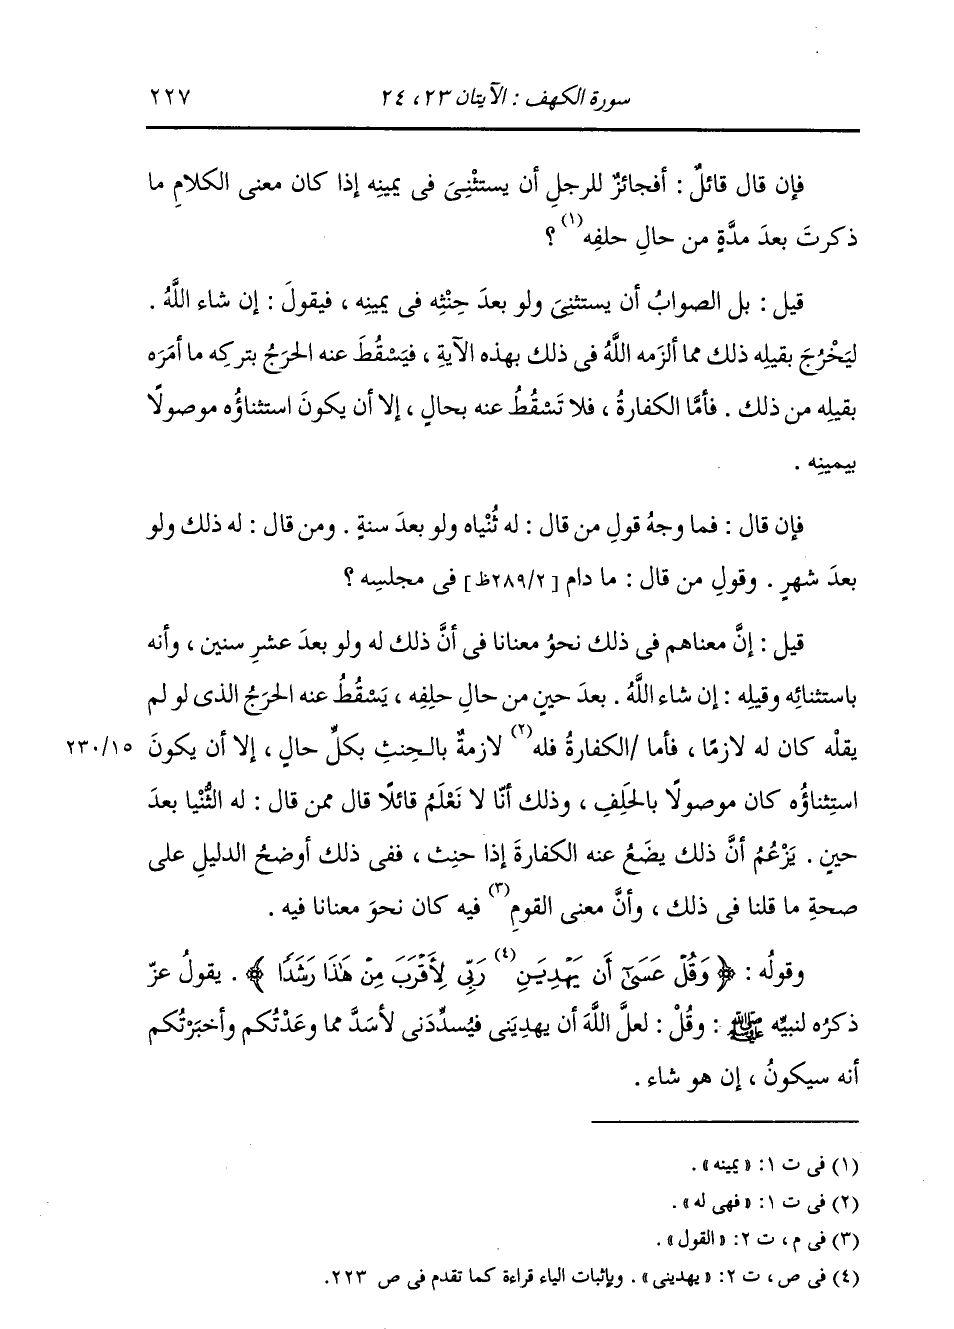 سورة الكهف : الآيتان ٢٣، ٢٤
٢٢٧
فإن قال قائلٌ : أفجائزٌ للرجلِ أن يستثْنِىَ فى يمينِه إذا كان معنى الكلامِ ما
ذكرتَ بعدَ مدَّةٍ من حالِ حلفِه(١) ؟
قيل : بل الصوابُ أن يستثنِىَ ولو بعدَ حِنْثِه فى يمينِه ، فيقولَ : إن شاء اللَّهُ .
ليَخْرُجَ بقيلِه ذلك مما ألزَمه اللَّهُ فى ذلك بهذه الآيةِ ، فيَسْقُطَ عنه الحرَجُ بتركِه ما أمَرَه
بقيلِه من ذلك . فأمَّا الكفارةُ ، فلا تَسْقُطُ عنه بحالٍ ، إلا أن يكونَ استثناؤُه موصولًا
بيمينِه .
فإن قال : فما وجهُ قولِ من قال : له ثُنْياه ولو بعدَ سنةٍ . ومن قال : له ذلك ولو
بعدَ شهرٍ . وقولِ من قال : ما دام [٢٨٩/٢ظ] فى مجلسِه ؟
قيل : إنَّ معناهم فى ذلك نحوُ معنانا فى أنَّ ذلك له ولو بعدَ عشرِ سنين ، وأنه
باستثنائِه وقيلِه : إن شاء اللَّهُ . بعدَ حينٍ من حالِ حلفِه ، يَسْقُطُ عنه الحرَجُ الذى لو لم
يقلْه كان له لازمًا ، فأما /الكفارةُ فله(٢) لازمةٌ بالحِنثِ بكلِّ حالٍ ، إلا أن يكونَ
٢٣٠/١٥
استِثناؤُه كان موصولًا بالحَلِفِ ، وذلك أنّا لا نَعْلَمُ قائلًا قال ممن قال : له الثُّنْيا بعدَ
حينٍ . يَزْعُمُ أنَّ ذلك يضَعُ عنه الكفارةَ إذا حنِث ، ففى ذلك أوضحُ الدليلِ على
صحةِ ما قلنا فى ذلك ، وأنَّ معنى القومِ(٣) فيه كان نحوَ معنانا فيه .
وقولُه : ﴿ وَقُلْ عَسَىٰٓ أَن يَهْدِيَنِ(٤) رَبِّى لِأَقْرَبَ مِنْ هَٰذَا رَشَدًا ﴾ . يقولُ عزّ
ذكرُه لنبيِّه ﷺ : وقُلْ : لعلَّ اللَّهَ أن يهدِيَنى فيُسدِّدَنى لأسَدَّ مما وعَدْتُكم وأخبَرْتُكم
أنه سيكونُ ، إن هو شاء .
(١) فى ت ١: «يمينه» .
(٢) فى ت ١: «فهى له» .
(٣) فى م ، ت ٢: «القول» .
(٤) فى ص ، ت ٢: «يهدينى» . وبإثبات الياء قراءة كما تقدم فى ص ٢٢٣.